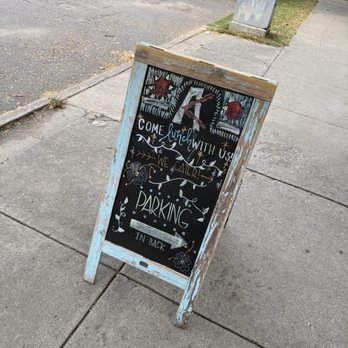 COME lunch WITH US!
WE CATER!
PARKING
IN BACK